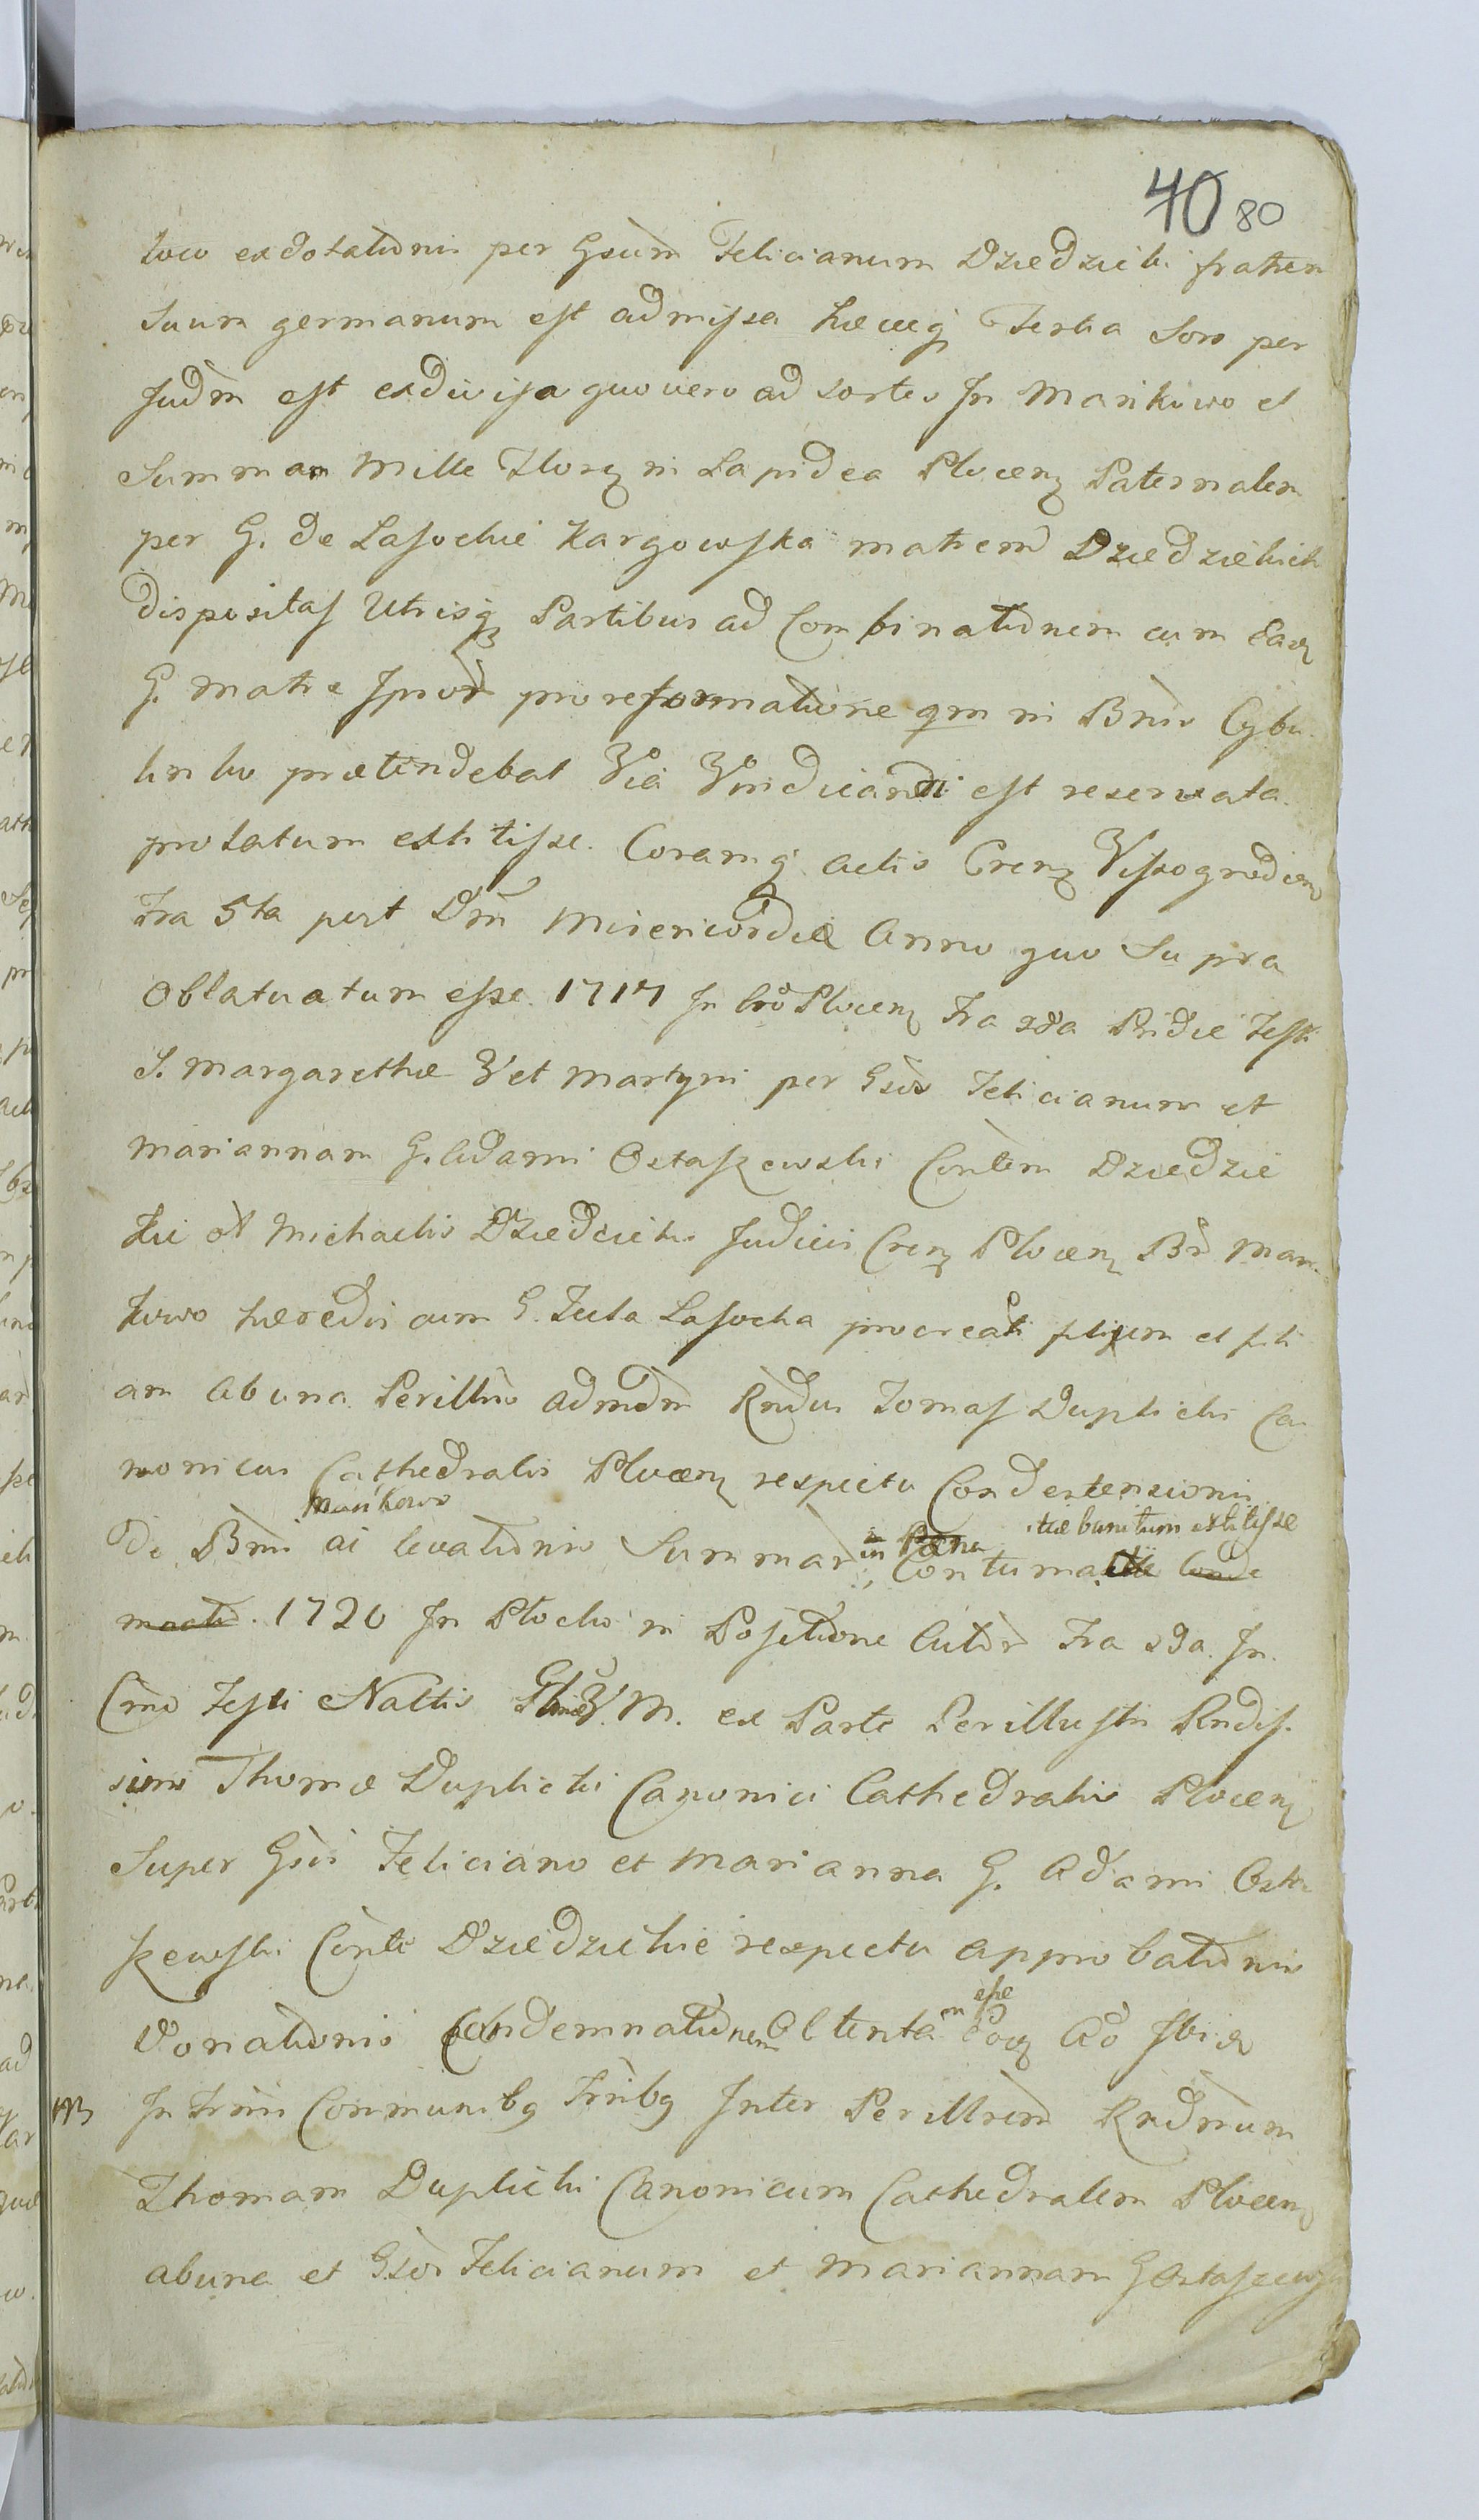 40 80
loco exdotationis per Gsum Felicianum Dziedzicki fratrem
Suum germanum est admissa hæcq Tertia Sors per
Judm est exdivisa quo vero ad sortes In Mankowo et
Summam Mille Flor in Lapidea Plocen Paternalem
per G. de Lasochie Kargowska matrem Dziedzickich
dispositas Utrisq Partibus ad Combinationem cum Ead
G. Matre Ipsor pro reformatione qm in Bnis Cybu
linko prætendebat Via Vindicandi est reservata
prolatum extitisse. Coramq actis Cren Vissogrodien
Fra 5ta post Dm Misericordiæ Anno quo Supra
Oblatuatum esse. 1717 In Cro Plocen Fra 2da Pridie Festi
S. Margarethæ V et Martyris per Gsos Felicianum et
Mariannam G. Adami Ostaszewski Contem Dziedzic
kie ol Michaelis Dziedzicki Judicis Cren Plocen Br Man
kowo hæredis cum G. Tecla Lasocka procreati filium et fili
am Ab una Perillris admdm Rndus Tomas Duplicki Ca
nonicus Cathedralis Plocen respectu Condextensionis
Mankowo
de Bnis ai levationis Summar in Pæna Contumaciæ Conde
tiæ banitum extitisse
mnatio. 1720 In Plocko in Positione Actor Fra 2da In
Cmo Festi Nattis Glmæ V. M. ex Parte Perillustri Rndis
simi Thomæ Duplicki Canonici Cathedralis Plocen
Super Gsis Feliciano et Marianna G. Adami Osta
szewski Conte Dziedzickie respectu approbationis
esse
Donationis Condemnationem Obtentam Eoq Ao Ibid
In Trmis Communibq Trnibq Inter Perillrem Rndmum
Thomam Duplicki Canonicum Cathedralem Plocen
abuna et Gsos Felicianum et Mariannam G Ostaszewski